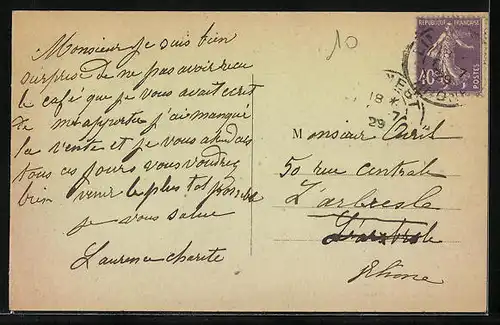 Monsieur je suis bien
surprise de ne pas avoir recu
le café que je vous avait ecrit
de m'apporter j'ai manqué
la vente et je vous atendais
tous ces jours vous voudrez
bien venir le plus tot possible
je vous salue
Laurence charite
10
REPUBLIQUE FRANÇAISE
40c
POSTES
18 * 7
29
Monsieur
50 rue centrale
L'arbresle
L'arbresle
Rhone